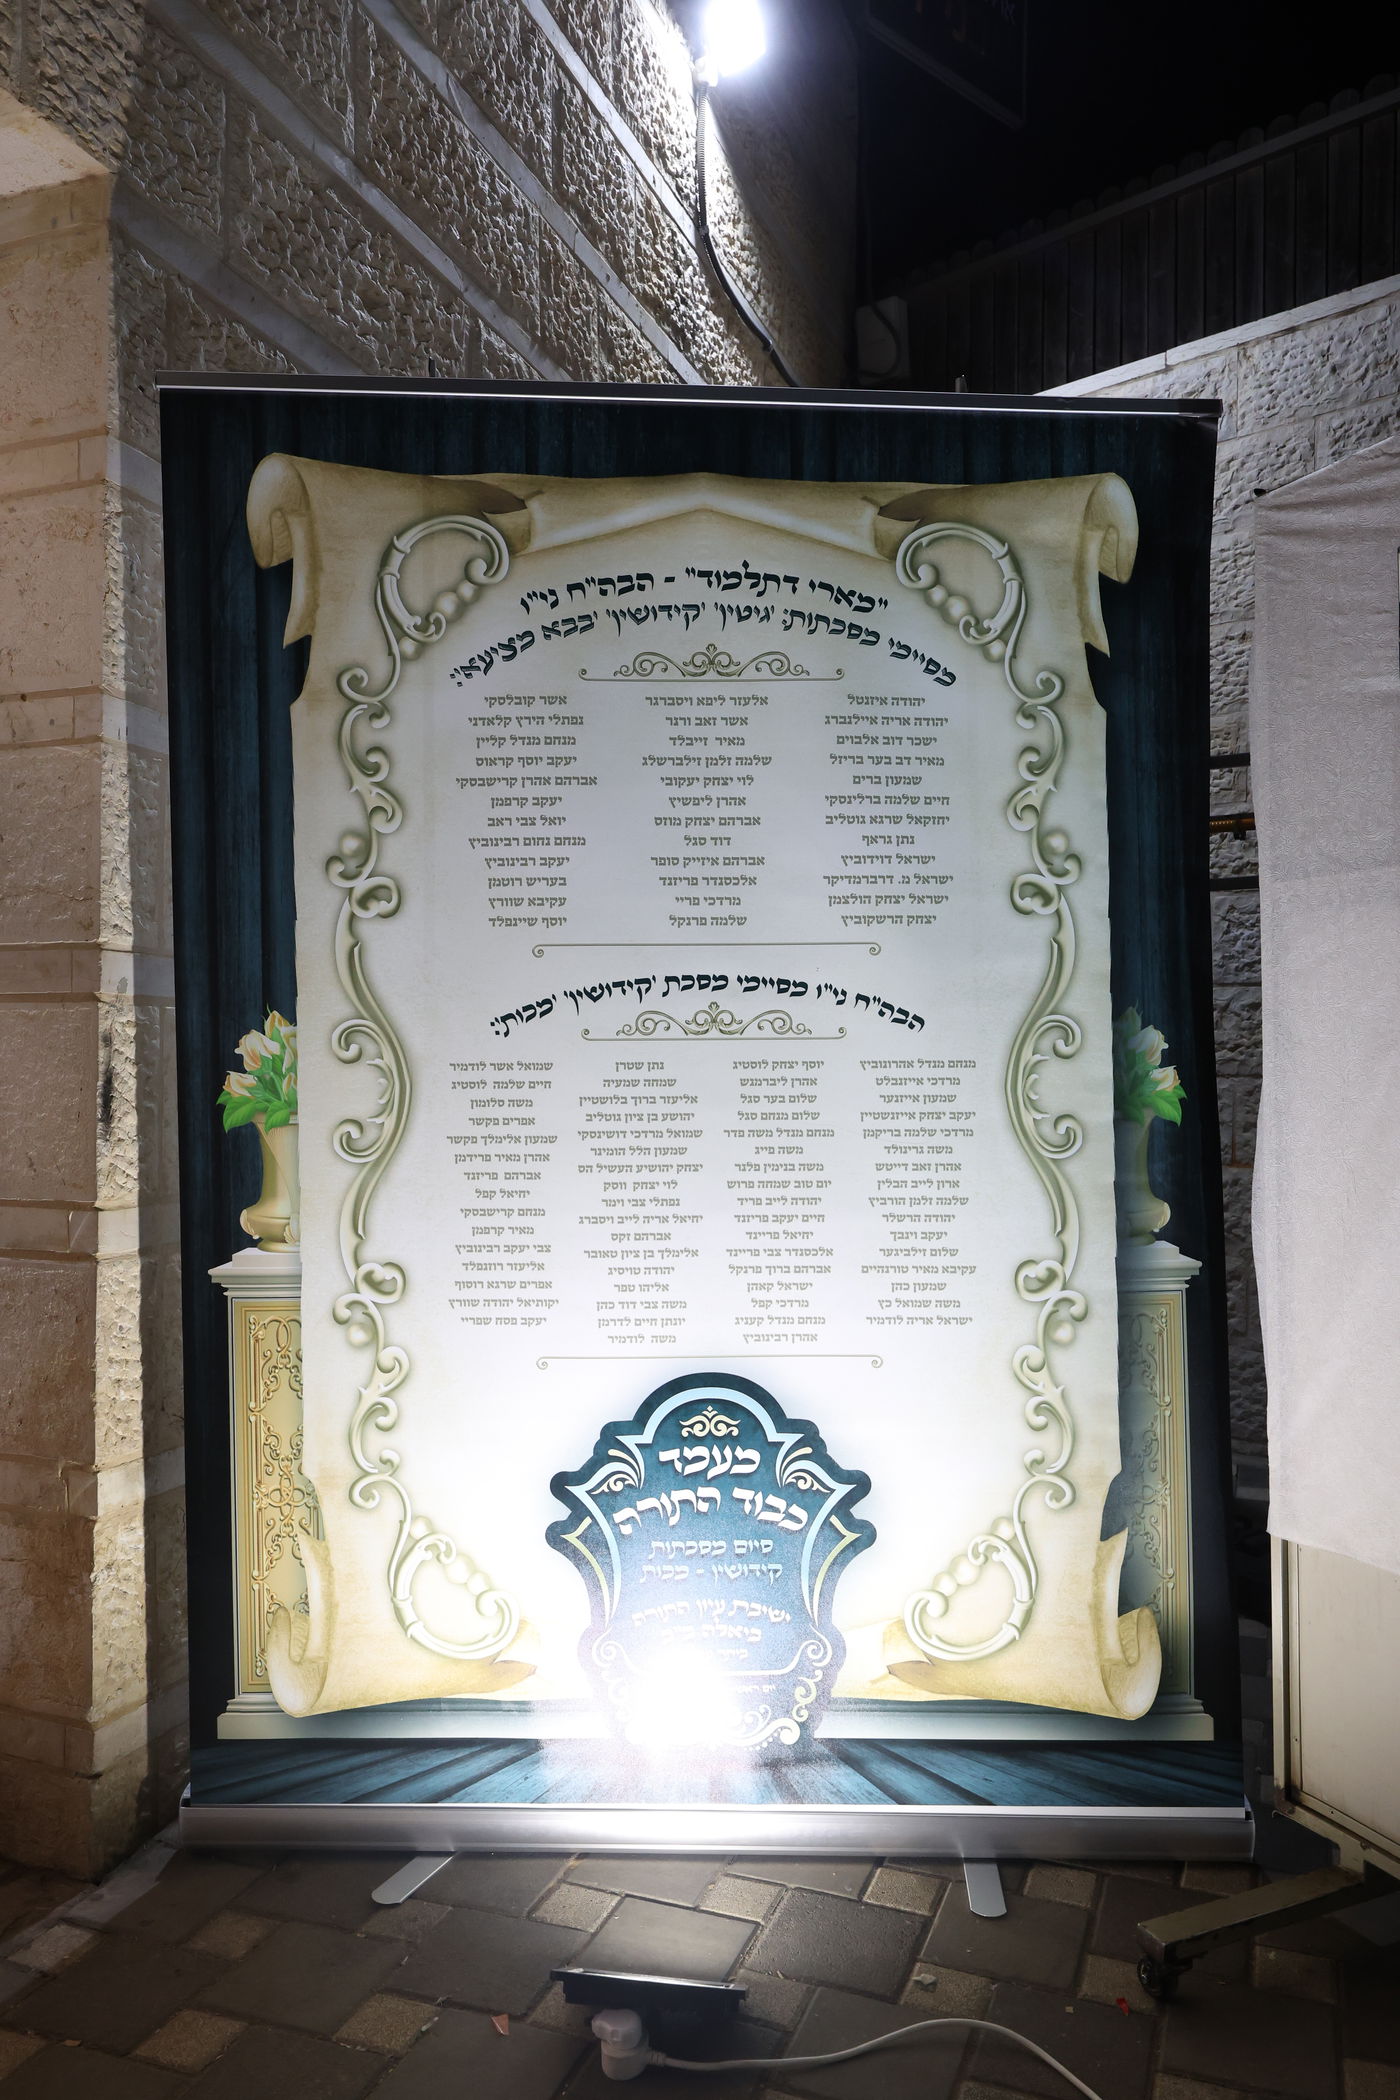 "מארי דתלמוד" - הבה"ח ני"ו
מסיימי מסכתות: 'גיטין' 'קידושין' 'בבא מציעא':
יהודה איזנטל
יהודה אריה איילנברג
ישכר דוב אלבוים
מאיר דב בער בריזל
שמעון ברים
חיים שלמה ברלינסקי
יחזקאל שרגא גוטליב
נתן גראף
ישראל דוידוביץ
ישראל מ. דרברמדיקר
ישראל יצחק הולצמן
יצחק הרשקוביץ
אלעזר ליפא ויסברגר
אשר זאב ורנר
מאיר זייבלד
שלמה זלמן זילברשלג
לוי יצחק יעקובי
אהרן ליפשיץ
אברהם יצחק מוזס
דוד סגל
אברהם אייזיק סופר
אלכסנדר פריינד
מרדכי פריי
שלמה פרנקל
אשר קובלסקי
נפתלי הירץ קלאדני
מנחם מנדל קליין
יעקב יוסף קראוס
אברהם אהרן קרישבסקי
יעקב קרפמן
יואל צבי ראב
מנחם נחום רבינוביץ
יעקב רבינוביץ
בעריש רוטמן
עקיבא שוורץ
יוסף שיינפלד
הבה"ח ני"ו מסיימי מסכת 'קידושין' 'מכות':
מנחם מנדל אהרונוביץ
מרדכי אייזנבלט
שמעון אייזנער
יעקב יצחק אייזנשטיין
מרדכי שלמה בריקמן
משה גרינולד
אהרן זאב דייטש
ארון לייב הבלין
שלמה זלמן הורביץ
יהודה הרשלר
יעקב וינבך
שלום זילביגער
עקיבא מאיר טורנהיים
שמעון כהן
משה שמואל כץ
ישראל אריה לודמיר
יוסף יצחק לוסטיג
אהרן ליברמנש
שלום בער סגל
שלום מנחם סגל
מנחם מנדל משה פדר
משה פייג
משה בנימין פלנר
יום טוב שמחה פרוש
יהודה לייב פריד
חיים יעקב פריינד
יחיאל פריינד
אלכסנדר צבי פריינד
אברהם ברוך פרנקל
ישראל קאהן
מרדכי קפל
מנחם מנדל קעניג
אהרן רבינוביץ
נתן שטרן
שמחה שמעיה
אליעזר ברוך בלושטיין
יהושע בן ציון גוטליב
שמואל מרדכי דושינסקי
שמעון הלל הומינר
יצחק יהושיע העשיל הס
לוי יצחק ווסק
נפתלי צבי וימר
יחיאל אריה לייב ויסברג
אברהם זקס
אלימלך בן ציון טאובר
יהודה טויסיג
אליהו טפר
משה צבי דוד כהן
יונתן חיים לדרמן
משה לודמיר
שמואל אשר לודמיר
חיים שלמה לוסטיג
משה סלומון
אפרים פקשר
שמעון אלימלך פקשר
אהרן מאיר פרידמן
אברהם פריינד
יחיאל קפל
מנחם קרישבסקי
מאיר קרפמן
צבי יעקב רבינוביץ
אליעזר רוזנפלד
אפרים שרגא רוסוף
יקותיאל יהודה שוורץ
יעקב פסח שפריי
מעמד
כבוד התורה
סיום מסכתות
קידושין - מכות
ישיבת עיון התורה